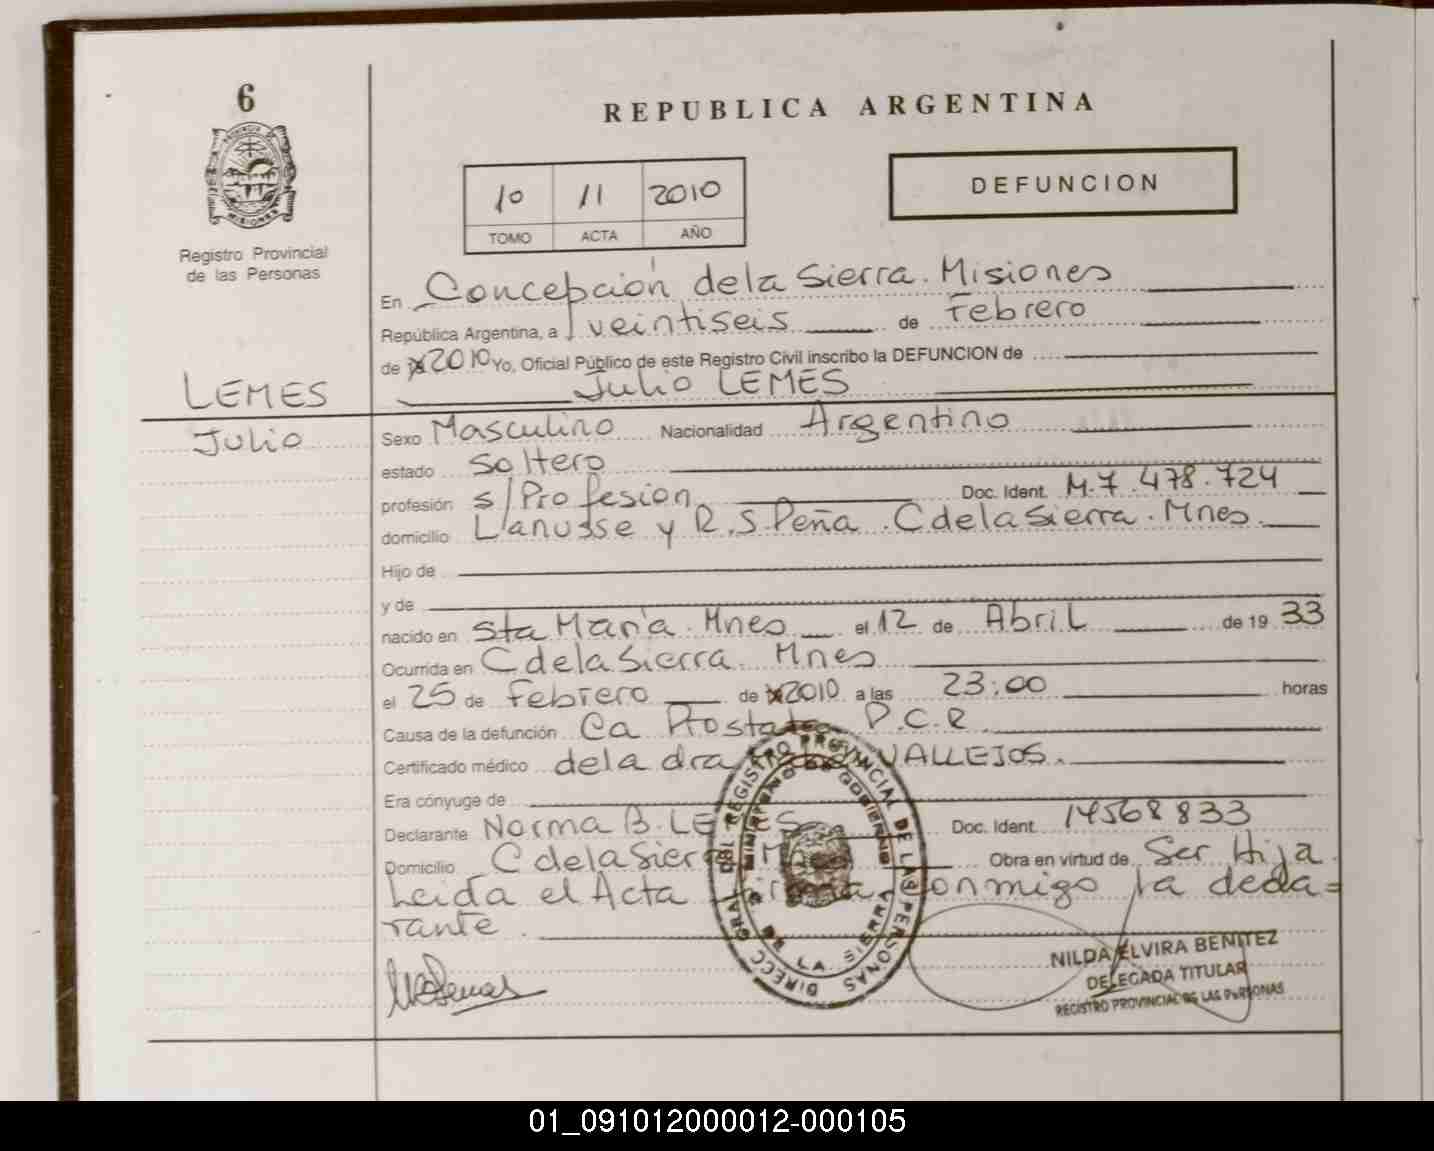 6
REPUBLICA ARGENTINA
PROVINCIA DE MISIONES
Registro Provincial
de las Personas
10 11 2010
TOMO ACTA AÑO
DEFUNCION
En Concepción de la Sierra. Misiones
República Argentina, a veintiseis de Febrero
de 2010 Yo, Oficial Público de este Registro Civil inscribo la DEFUNCION de
LEMES
Julio LEMES
Julio
Sexo Masculino Nacionalidad Argentino
estado Soltero
profesión s/Profesion Doc. Ident. M.7.478.724
domicilio Lanusse y R.S.Peña. C de la Sierra. Mnes.
Hijo de
y de
nacido en Sta María. Mnes el 12 de Abril de 19 33
Ocurrida en C de la Sierra. Mnes
el 25 de Febrero de 2010 a las 23:00 horas
Causa de la defunción Ca Prostata P.C.R
Certificado médico de la dra VALLEJOS.
Era cónyuge de
Declarante Norma B. Doc. Ident. 14568833
Domicilio C de la Sierra Obra en virtud de Ser Hija.
Leida el Acta firma conmigo la decla=
rante.
DIRECC GRAL DEL REGISTRO PROVINCIAL DE LAS PERSONAS
MINISTERIO DE GOBIERNO
DE LA SIERRA
NILDA ELVIRA BENITEZ
DELEGADA TITULAR
REGISTRO PROVINCIAL DE LAS PERSONAS
01_091012000012-000105